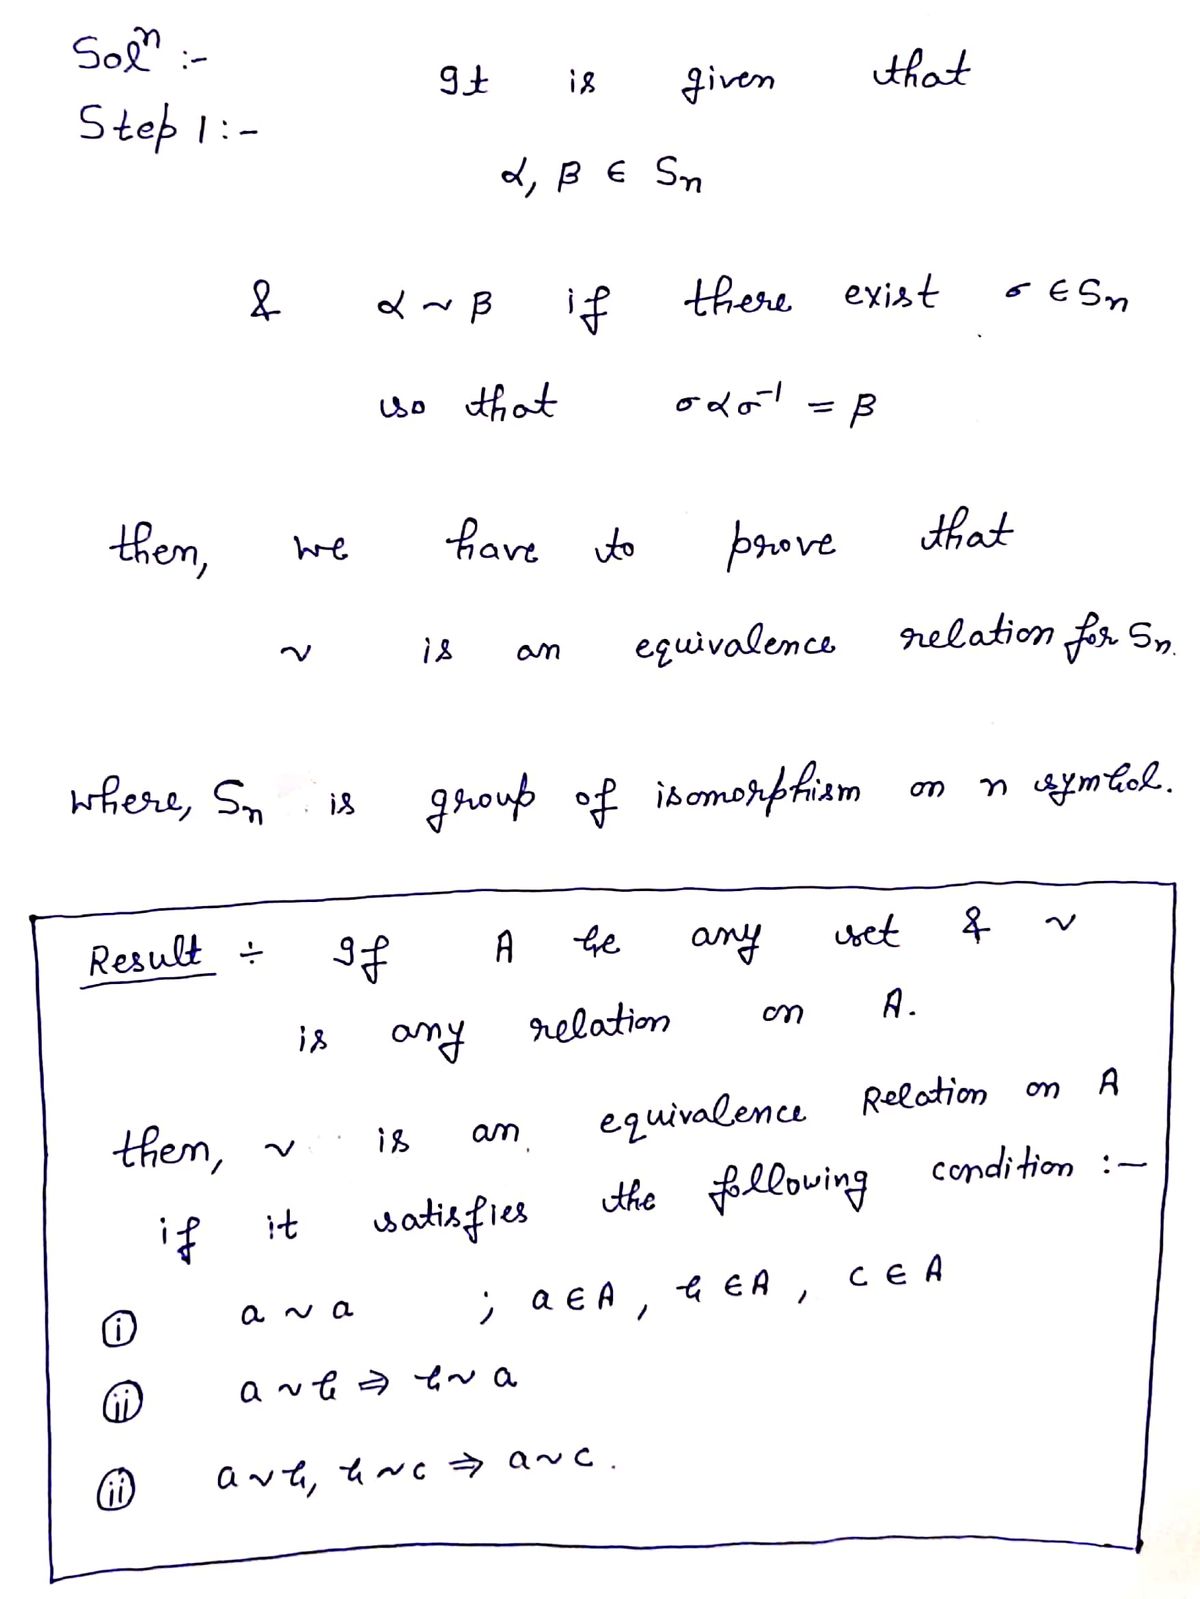 Solⁿ :-
Step 1 :-
It is given that
α, β ∈ Sn
& α ~ β if there exist σ ∈ Sn
so that σασ⁻¹ = β
then, we have to prove that
~ is an equivalence relation for Sn.
where, Sn is group of isomorphism on n symbol.
Result ÷ If A be any set & ~
is any relation on A.
then, ~ is an equivalence Relation on A
if it satisfies the following condition :-
(i) a ~ a ; a ∈ A, b ∈ A, c ∈ A
(ii) a ~ b ⇒ b ~ a
(ii) a ~ b, b ~ c ⇒ a ~ c.